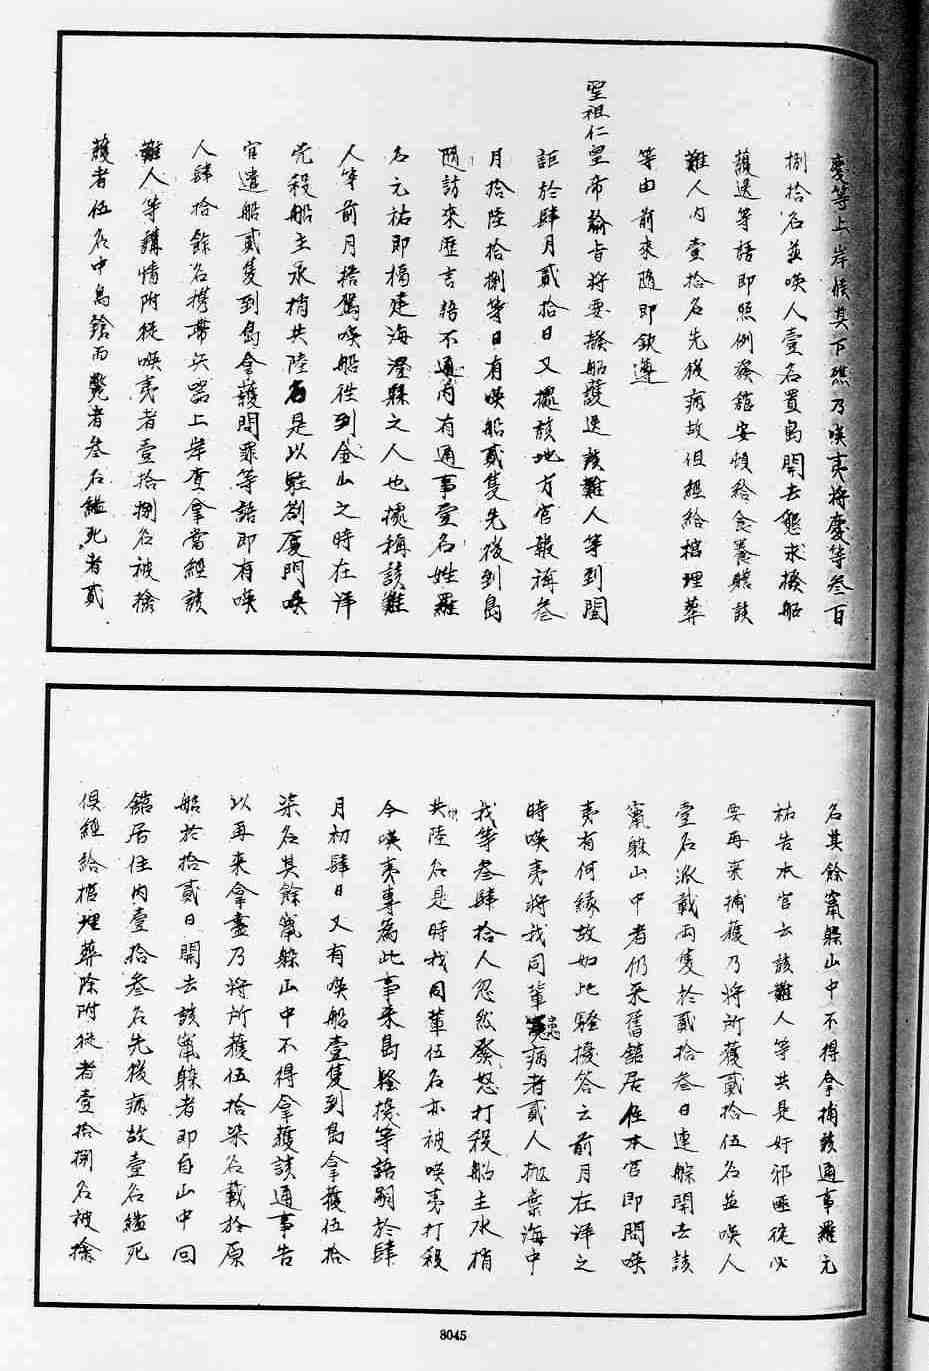 慶等上岸候其下慿乃㗸夷將慶等叁百
捌拾名並唤人壹名置島開去懇求撥船
護送等語即照例發舘安頓給食養贍該
難人內壹拾名先後病故但經給棺埋葬
等由前來隨即欽遵
聖祖仁皇帝諭旨將要撥船護送該難人等到閩
詎於肆月貳拾日又據該地方官報稱叁
月拾陸拾捌等日有唤船貳隻先後到島
隨訪來歷言語不通內有通事壹名姓羅
名元祐即福建海澄縣之人也據稱該難
人等前月搭駕唤船徃到金山之時在洋
先殺船主永梢共陸名是以駐劄厦門唤
官遣船貳隻到島拿護問罪等語即有唤
人肆拾餘名携帶兵器上岸查拿當經該
難人等講情附從唤夷者壹拾捌名被擒
護者伍名中鳥鎗而斃者叁名縊死者貳
名其餘竄躲山中不得拿捕該通事羅元
祐告本官云該難人等共是奸邪匪徒必
要再來捕獲乃將所獲貳拾伍名並唤人
壹名派載両隻於貳拾叁日連䑸開去該
竄躲山中者仍來舊舘居住本官即問唤
夷有何縁故如此騷擾答云前月在洋之
時唤夷將我同輩患病者貳人抛棄海中
我等叁肆拾人忽然發怒打殺船主水梢
共陸名是時我同輩伍名亦被唤夷打殺
今唤夷專為此事來島騷擾等語嗣於肆
月初肆日又有唤船壹隻到島拿獲伍拾
柒名其餘竄躲山中不得拿獲該通事告
以再来拿盡乃將所獲伍拾柒名載於原
船於拾貳日開去該竄躲者即自山中回
舘居住內壹拾叁名先後病故壹名縊死
俱經給棺埋葬除附從者壹拾捌名被擒
8045